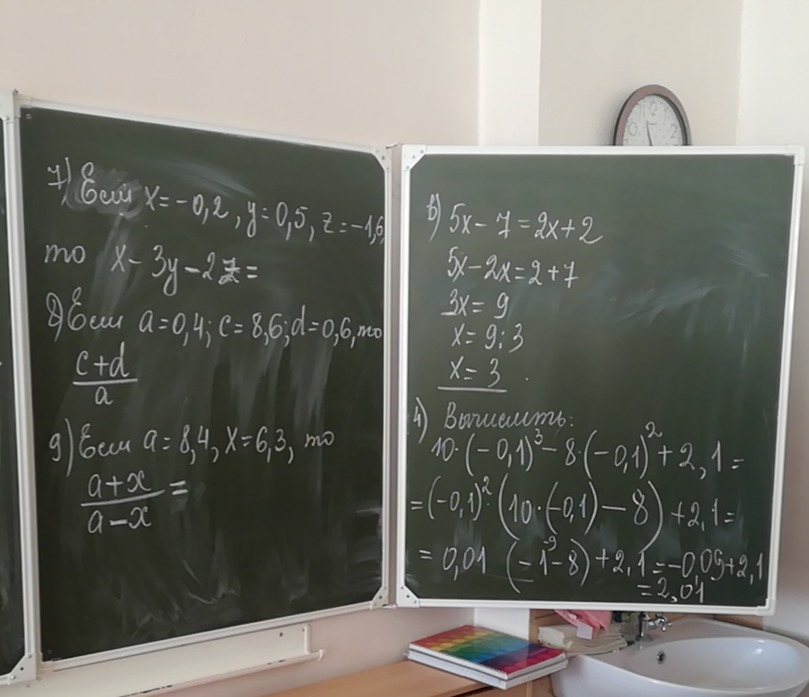 7) Если x = -0,2, y = 0,5, z = -1,6
то x - 3y - 2z =
8) Если a = 0,4; c = 8,6; d = 0,6, то
c+d
a
9) Если a = 8,4, x = 6,3, то
a+x
a-x =
в) 5x - 7 = 2x + 2
5x - 2x = 2 + 7
3x = 9
x = 9 : 3
x = 3
4) Вычислить:
10·(-0,1)³ - 8·(-0,1)² + 2,1 =
= (-0,1)²·(10·(-0,1) - 8) + 2,1 =
= 0,01 (-1-8) + 2,1 = -0,09 + 2,1
= 2,01